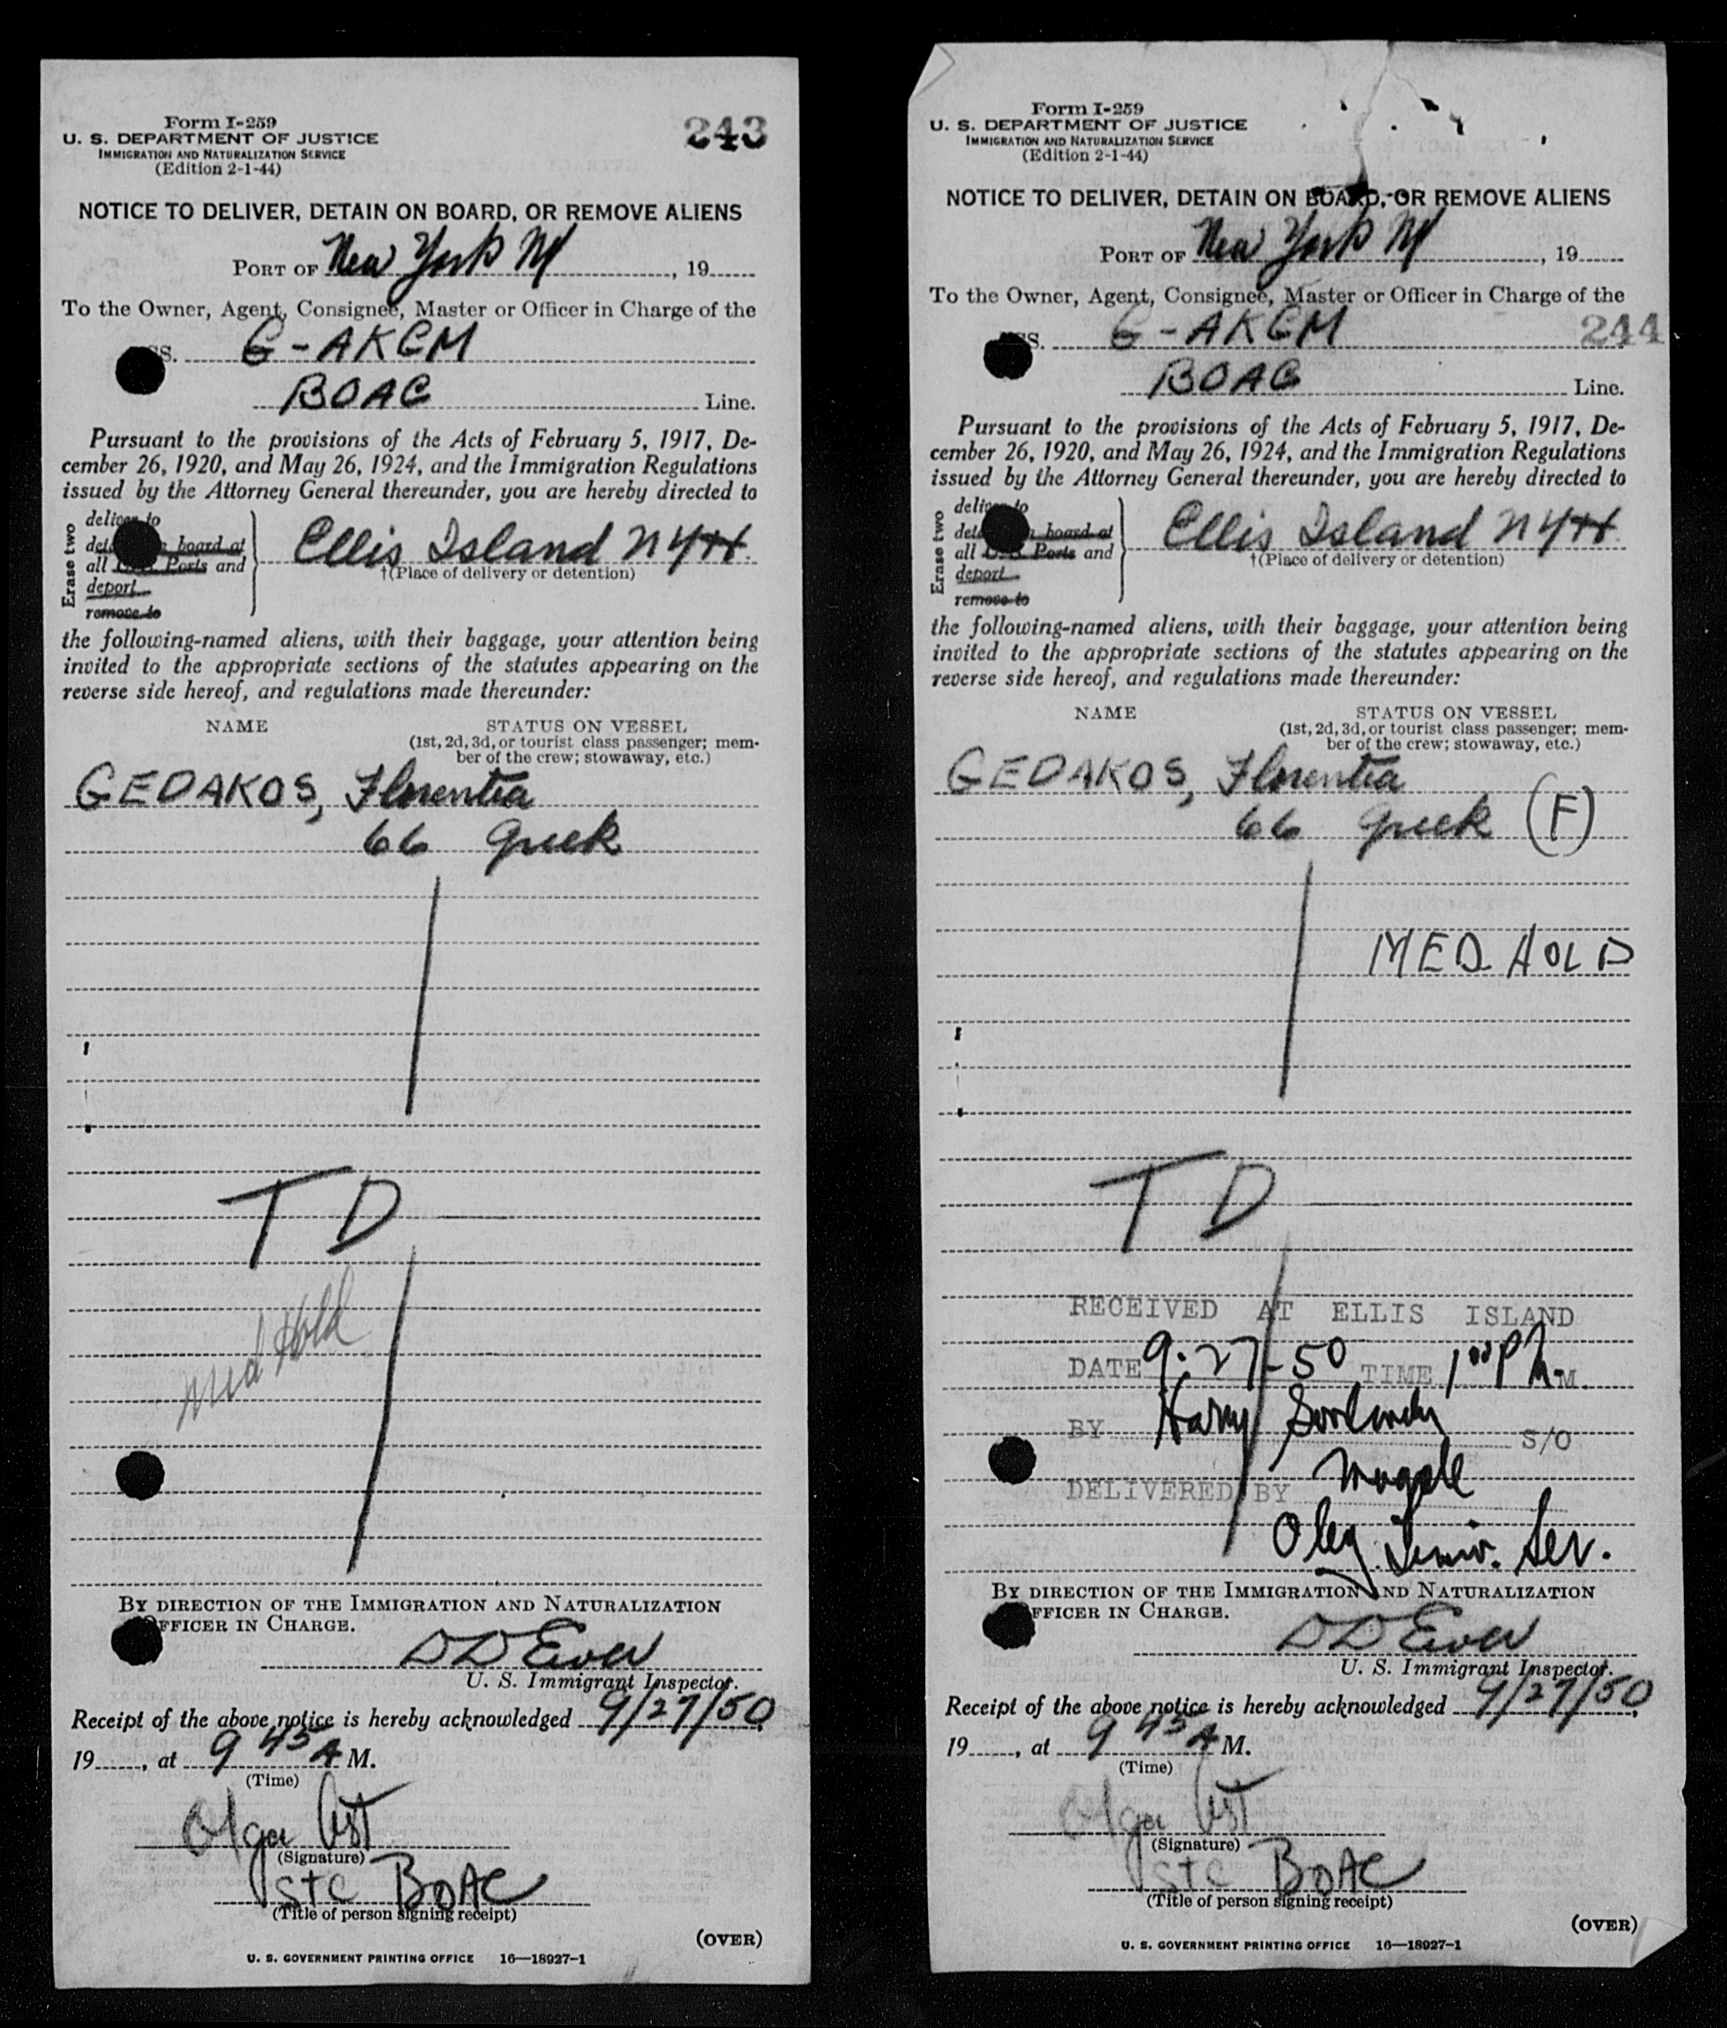 Form I-259
U. S. DEPARTMENT OF JUSTICE
IMMIGRATION AND NATURALIZATION SERVICE
(Edition 2-1-44)
243
NOTICE TO DELIVER, DETAIN ON BOARD, OR REMOVE ALIENS
PORT OF New York NY, 19
To the Owner, Agent, Consignee, Master or Officer in Charge of the
SS. G-AKGM
BOAC Line.
Pursuant to the provisions of the Acts of February 5, 1917, De-
cember 26, 1920, and May 26, 1924, and the Immigration Regulations
issued by the Attorney General thereunder, you are hereby directed to
Erase two
deliver to
board at
all Ports and
deport
remove to
Ellis Island NYH
†(Place of delivery or detention)
the following-named aliens, with their baggage, your attention being
invited to the appropriate sections of the statutes appearing on the
reverse side hereof, and regulations made thereunder:
NAME STATUS ON VESSEL
(1st, 2d, 3d, or tourist class passenger; mem-
ber of the crew; stowaway, etc.)
GEDAKOS, Florentia
66 Greek
TD
Med Hold
BY DIRECTION OF THE IMMIGRATION AND NATURALIZATION
OFFICER IN CHARGE.
U. S. Immigrant Inspector.
Receipt of the above notice is hereby acknowledged 9/27/50
19, at 9 45 A M.
(Time)
Olga
(Signature)
STC BOAC
(Title of person signing receipt)
(OVER)
U. S. GOVERNMENT PRINTING OFFICE 16—18927-1
Form I-259
U. S. DEPARTMENT OF JUSTICE
IMMIGRATION AND NATURALIZATION SERVICE
(Edition 2-1-44)
NOTICE TO DELIVER, DETAIN ON BOARD, OR REMOVE ALIENS
PORT OF New York NY, 19
To the Owner, Agent, Consignee, Master or Officer in Charge of the
SS. G-AKGM 244
BOAC Line.
Pursuant to the provisions of the Acts of February 5, 1917, De-
cember 26, 1920, and May 26, 1924, and the Immigration Regulations
issued by the Attorney General thereunder, you are hereby directed to
Erase two
deliver to
board at
all Ports and
deport
remove to
Ellis Island NYH
†(Place of delivery or detention)
the following-named aliens, with their baggage, your attention being
invited to the appropriate sections of the statutes appearing on the
reverse side hereof, and regulations made thereunder:
NAME STATUS ON VESSEL
(1st, 2d, 3d, or tourist class passenger; mem-
ber of the crew; stowaway, etc.)
GEDAKOS, Florentia
66 Greek (F)
MED. HOLD
TD
RECEIVED AT ELLIS ISLAND
DATE 9-27-50 TIME 1 00 P M.
BY Harry S/O
DELIVERED BY
Ser.
BY DIRECTION OF THE IMMIGRATION AND NATURALIZATION
OFFICER IN CHARGE.
U. S. Immigrant Inspector.
Receipt of the above notice is hereby acknowledged 9/27/50
19, at 9 45 A M.
(Time)
Olga
(Signature)
STC BOAC
(Title of person signing receipt)
(OVER)
U. S. GOVERNMENT PRINTING OFFICE 16—18927-1